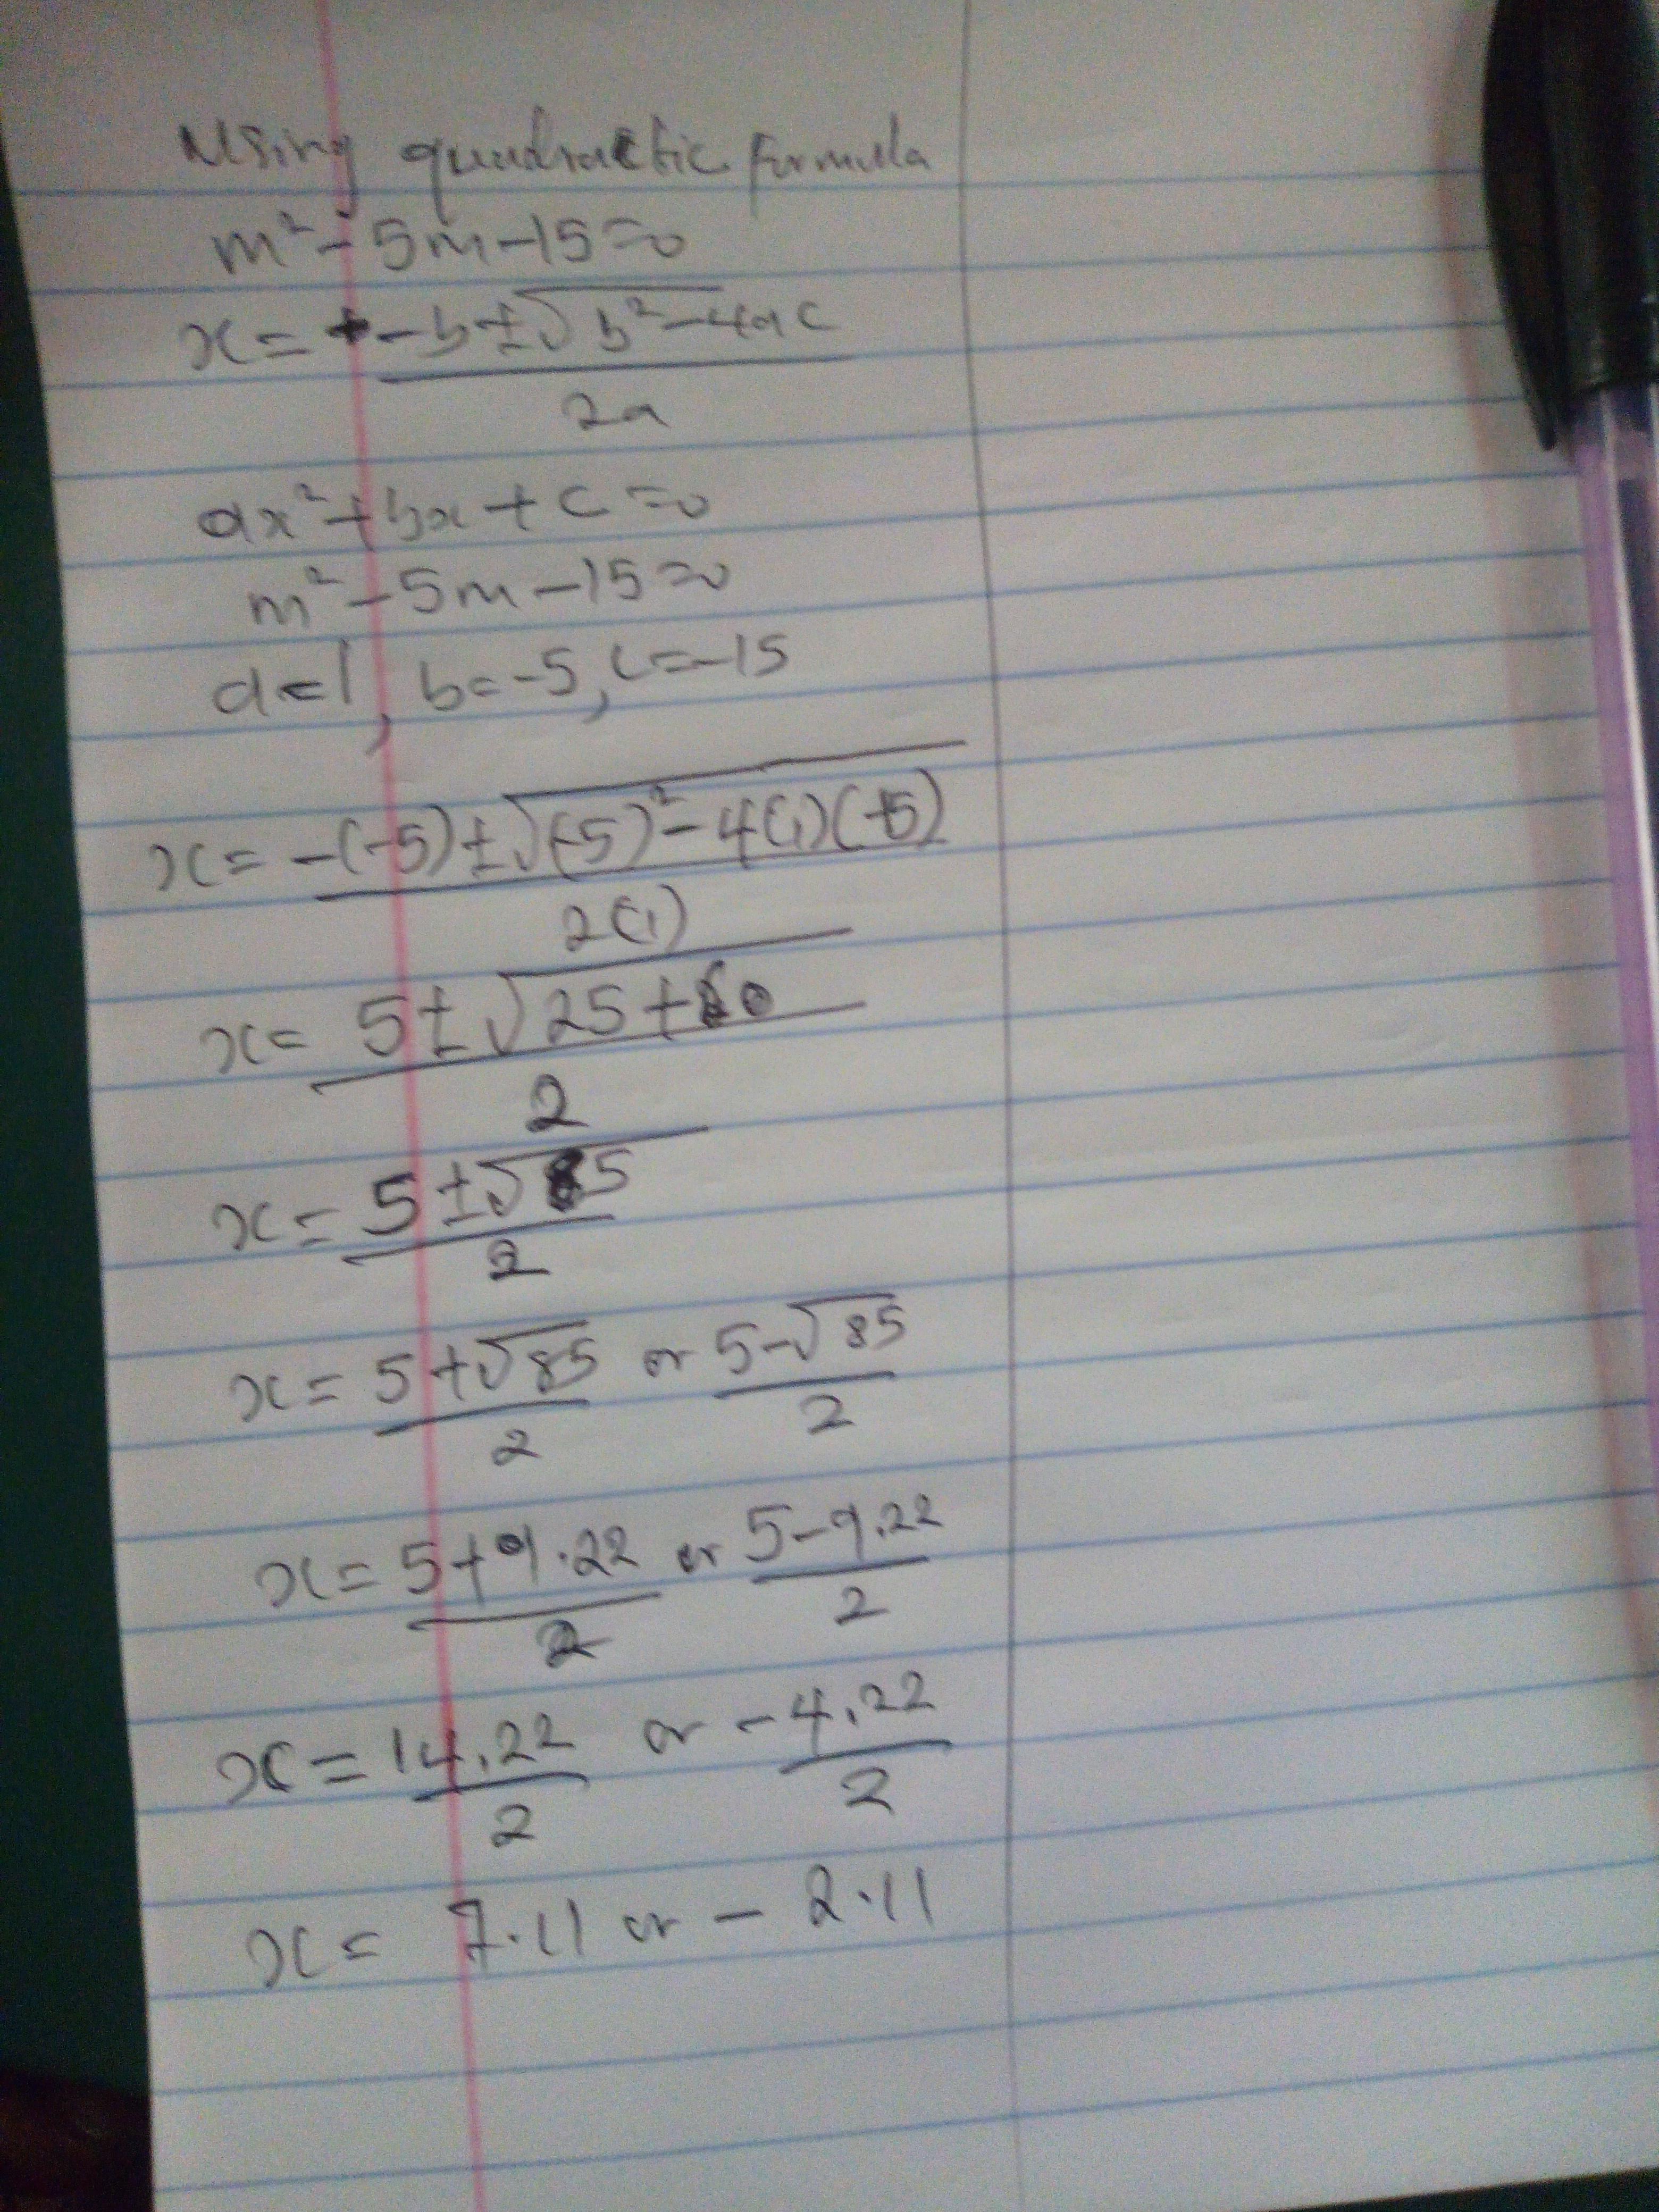 Using quadractic formula
m² - 5m - 15 = 0
x = -b ± √b² - 4ac / 2a
ax² + bx + c = 0
m² - 5m - 15 = 0
a = 1, b = -5, c = -15
x = -(-5) ± √(-5)² - 4(1)(-15) / 2(1)
x = 5 ± √25 + 60 / 2
x = 5 ± √85 / 2
x = 5 + √85 / 2 or 5 - √85 / 2
x = 5 + 9.22 / 2 or 5 - 9.22 / 2
x = 14.22 / 2 or -4.22 / 2
x = 7.11 or - 2.11